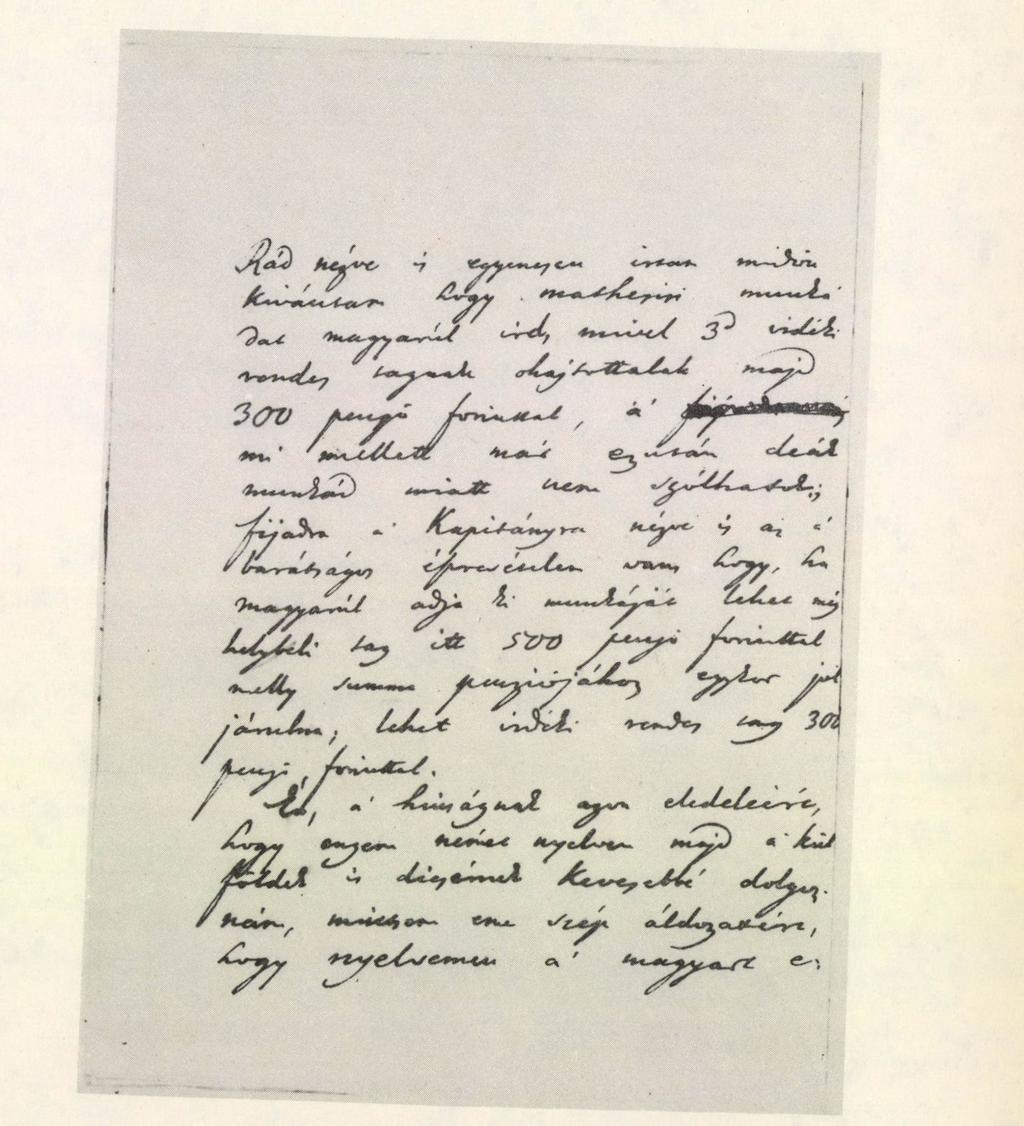 Rád nézve is egyenesen irtam midőn
kivántam hogy mathesisi munká
dat magyarúl irds, mivel 3d vidéki
rendes tagnak ohajtottalak majd
300 pengő forinttal, a'
mi mellett már ezután deák
munkád miatt nem szólhatok;
fijadra a' Kapitányra nézve is az a'
barátságos észrevételem vam hogy, ha
magyarúl adja ki munkáját lehet még
helybéli tag itt 500 pengő forinttal
melly summa penziójához egykor jól
járulna; lehet vidéki rendes tag 300
pengő forinttal.
Én, a' hiuságnak azon eledeleiért,
hogy engem német nyelven majd a' kül
földek is dicsérnek kevesebbé dolgoz-
nám, mintsem eme szép áldozatért,
hogy nyelvemen a' magyart e-